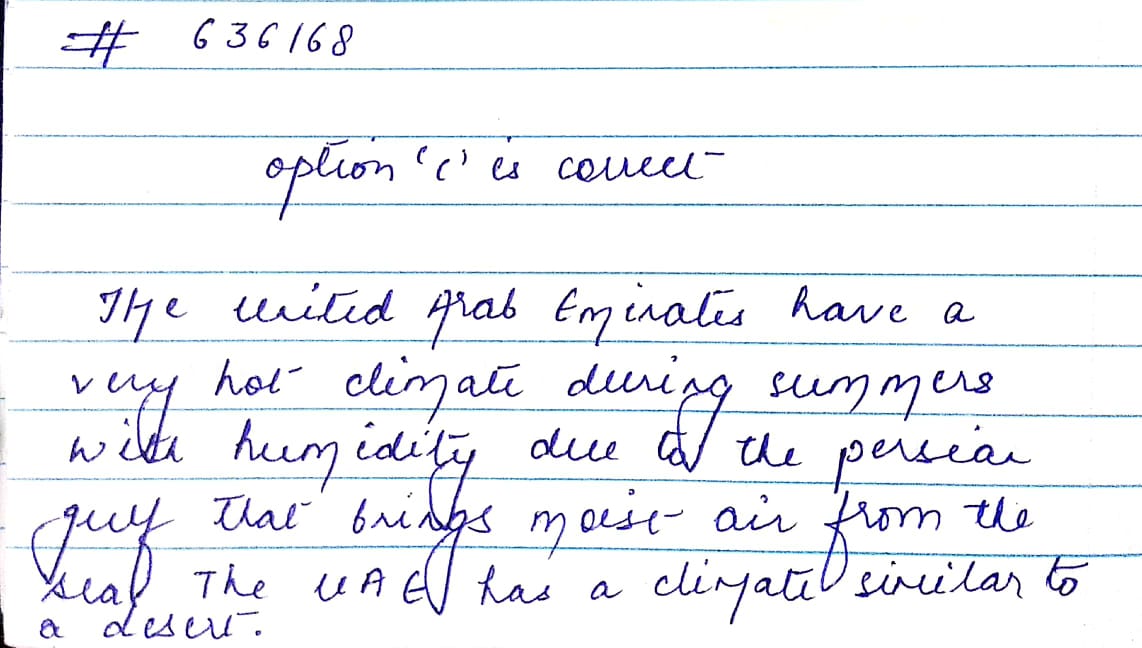 # 636168
option 'c' is correct
The united Arab Emirates have a
very hot climate during summers
with humidity due to the persian
gulf that brings moist air from the
sea. The UAE has a climate similar to
a desert.